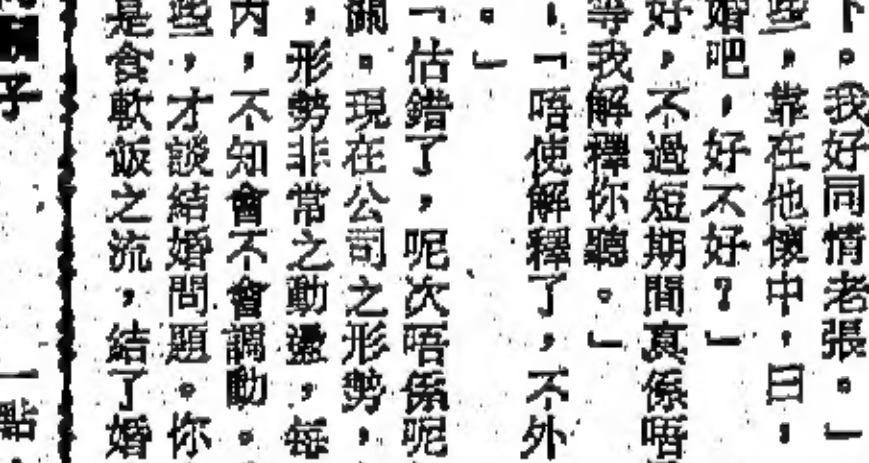 下。我好同情老張。」
些，靠在他懷中，曰：
婚吧，好不好？」
好，不過短期間真係唔
等我解釋你聽。」
、「唔使解釋了，不外
。」
「估錯了，呢次唔係呢
關。現在公司之形勢，
，形勢非常之動盪，每
內，不知會不會調動。
些，才談結婚問題。你
是食軟飯之流，結了婚
子
一點